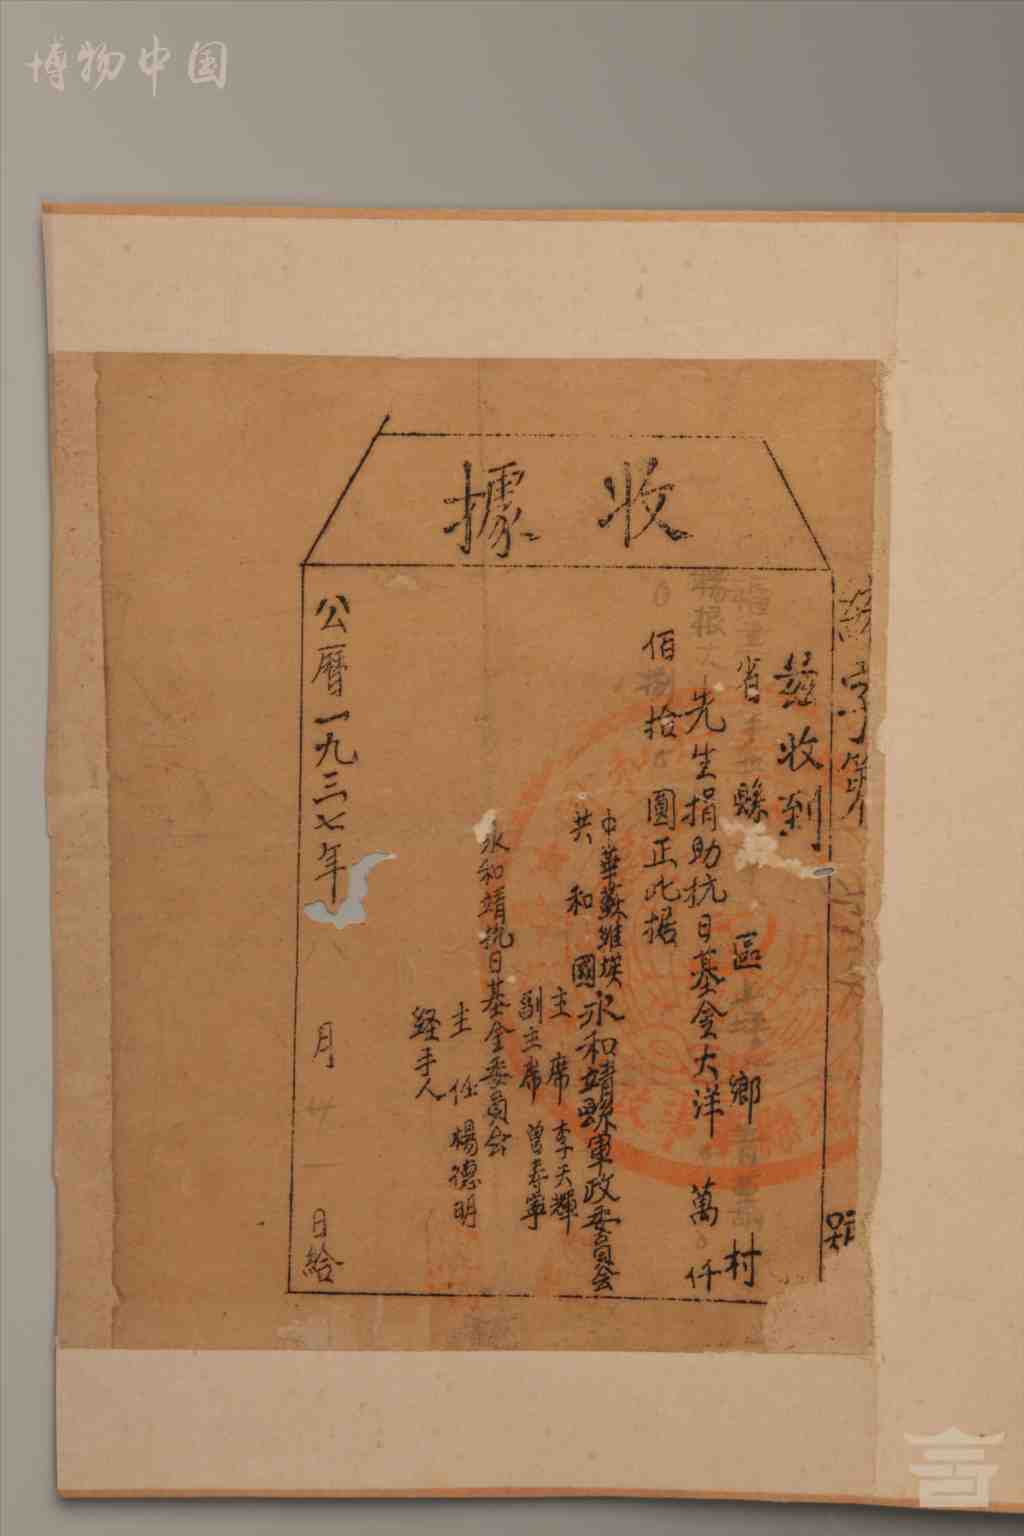 博物中国
收據
字第 號
茲收到
省 縣 區 鄉 村
楊根 先生捐助抗日基金大洋 萬 仟
佰捌拾 圓正此据
中華蘇維埃
共和國
永和靖縣軍政委員會
主席 李天輝
副主席 曾春寧
永和靖抗日基金委員会
主任 楊德明
経手人
公曆一九三七年八月廿一日給